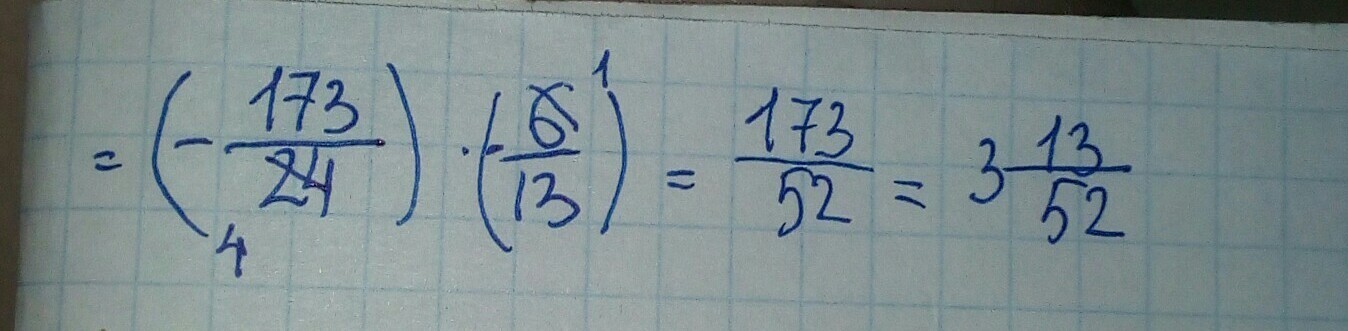 = (- 173/24 4) · (- 6/13 1) = 173/52 = 3 13/52